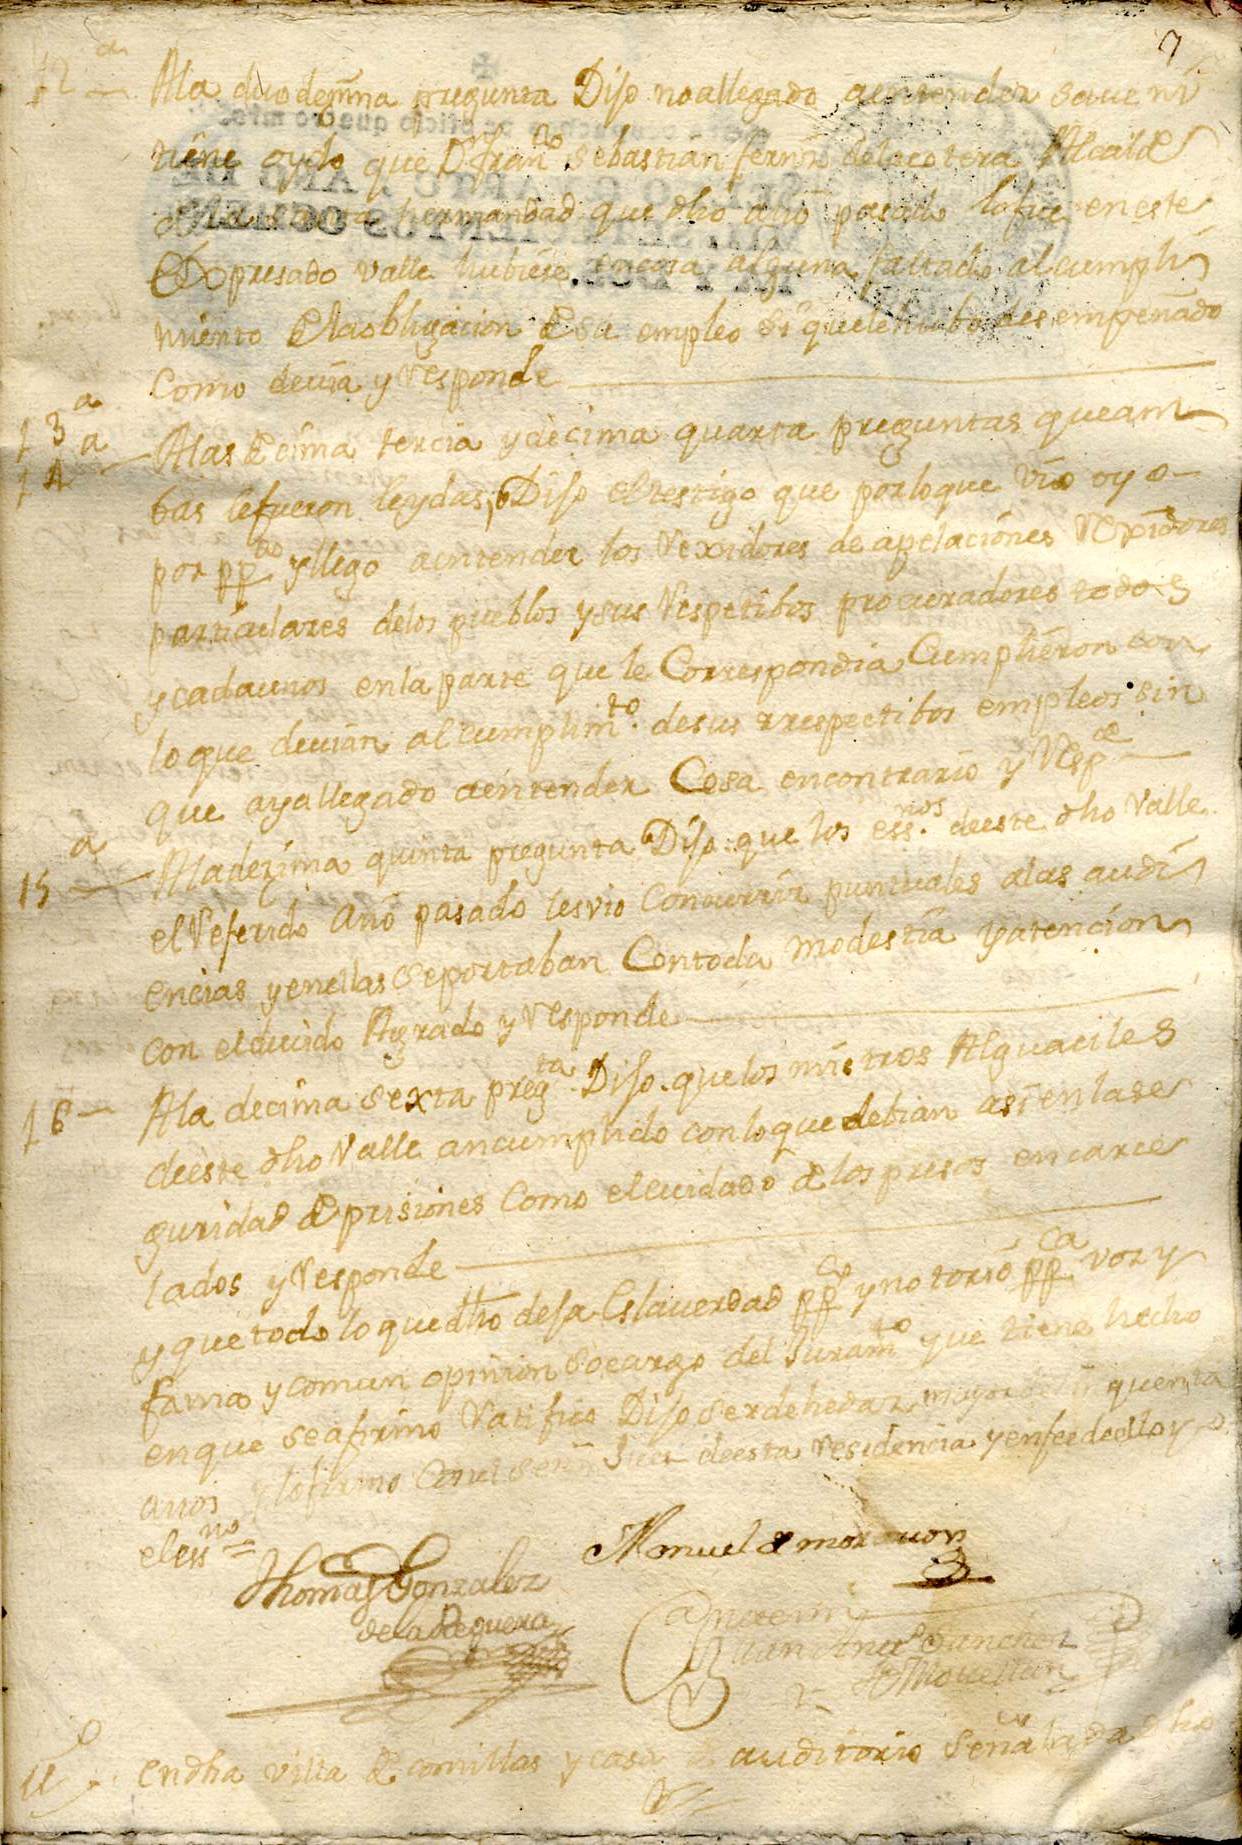 7
12 a
Ala duodezima pregunta Dijo no allegado aentender save ni
tiene oydo que Dn. Franco Sebastian fernz delacotera Alcalde
dela santa hermandad que dho año pasado lo fue eneste
Expresado valle hubiese encosa alguna faltado al cumpli
miento delaobligacion de su empleo si que le hubo desempeñado
como devia y Responde
13 a
14 a
Alas decima tercia y decima quarta preguntas queam
bas lefueron leydas, Dijo eltestigo que porloque vio oyo
por ppco yllego aentender los Rexidores de apelaciones Rexidores
particulares delos pueblos ysus Respetibos procuradores todos
y cadaunos enla parte que le Correspondia Cumplieron con
loque devian al cumplimto. desus rrespectibos empleos sin
que ayallegado aentender Cosa encontrario y Respde
15 a
Aladezima quinta pregunta Dijo que los essnos. deeste dho Valle
el Referido año pasado lesvio Concurrir puntuales alas audi
encias yenellas Seportaban Contoda modestia yatencion
con eldevido Agrado y Responde
16
Ala decima sexta pregta Dijo. quelos mistros Alguaciles
deeste dho Valle ancumplido conloque debian asi enlase
guridad de prisiones Como elcuidado de los presos encarce
lados y Responde
y que todo lo quedho deja Eslaverdad ppco ynotorio ppca voz y
fama y comun opinion socargo del Juramto que tiene hecho
enque seafirmo Ratifico Dijo serdehedaz mayor de quenta
años ylofirmo Conel señor Juez deesta residencia yenfeedeello yo
el essno
Manuel de morauon
Thomas Gonzalez
dela Reguera
Antemi
Juan Anto Sanchez
de Movellan
En dha villa de comillas y casa de auditorio señalada dho